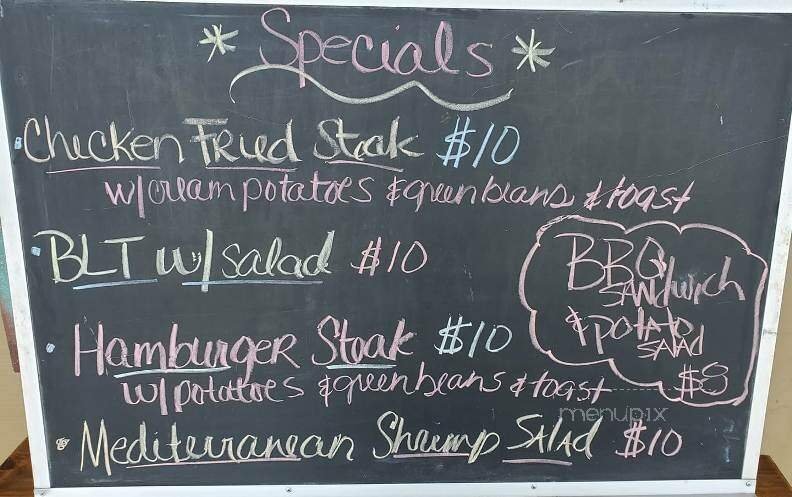 * Specials *
Chicken Fried Steak $10
w/cream potatoes & green beans & toast
BLT w/ salad $10
Hamburger Steak $10
w/ potatoes & green beans & toast
Mediterranean Shrimp Salad $10
BBQ
Sandwich
& potato
Salad
$8
menupix